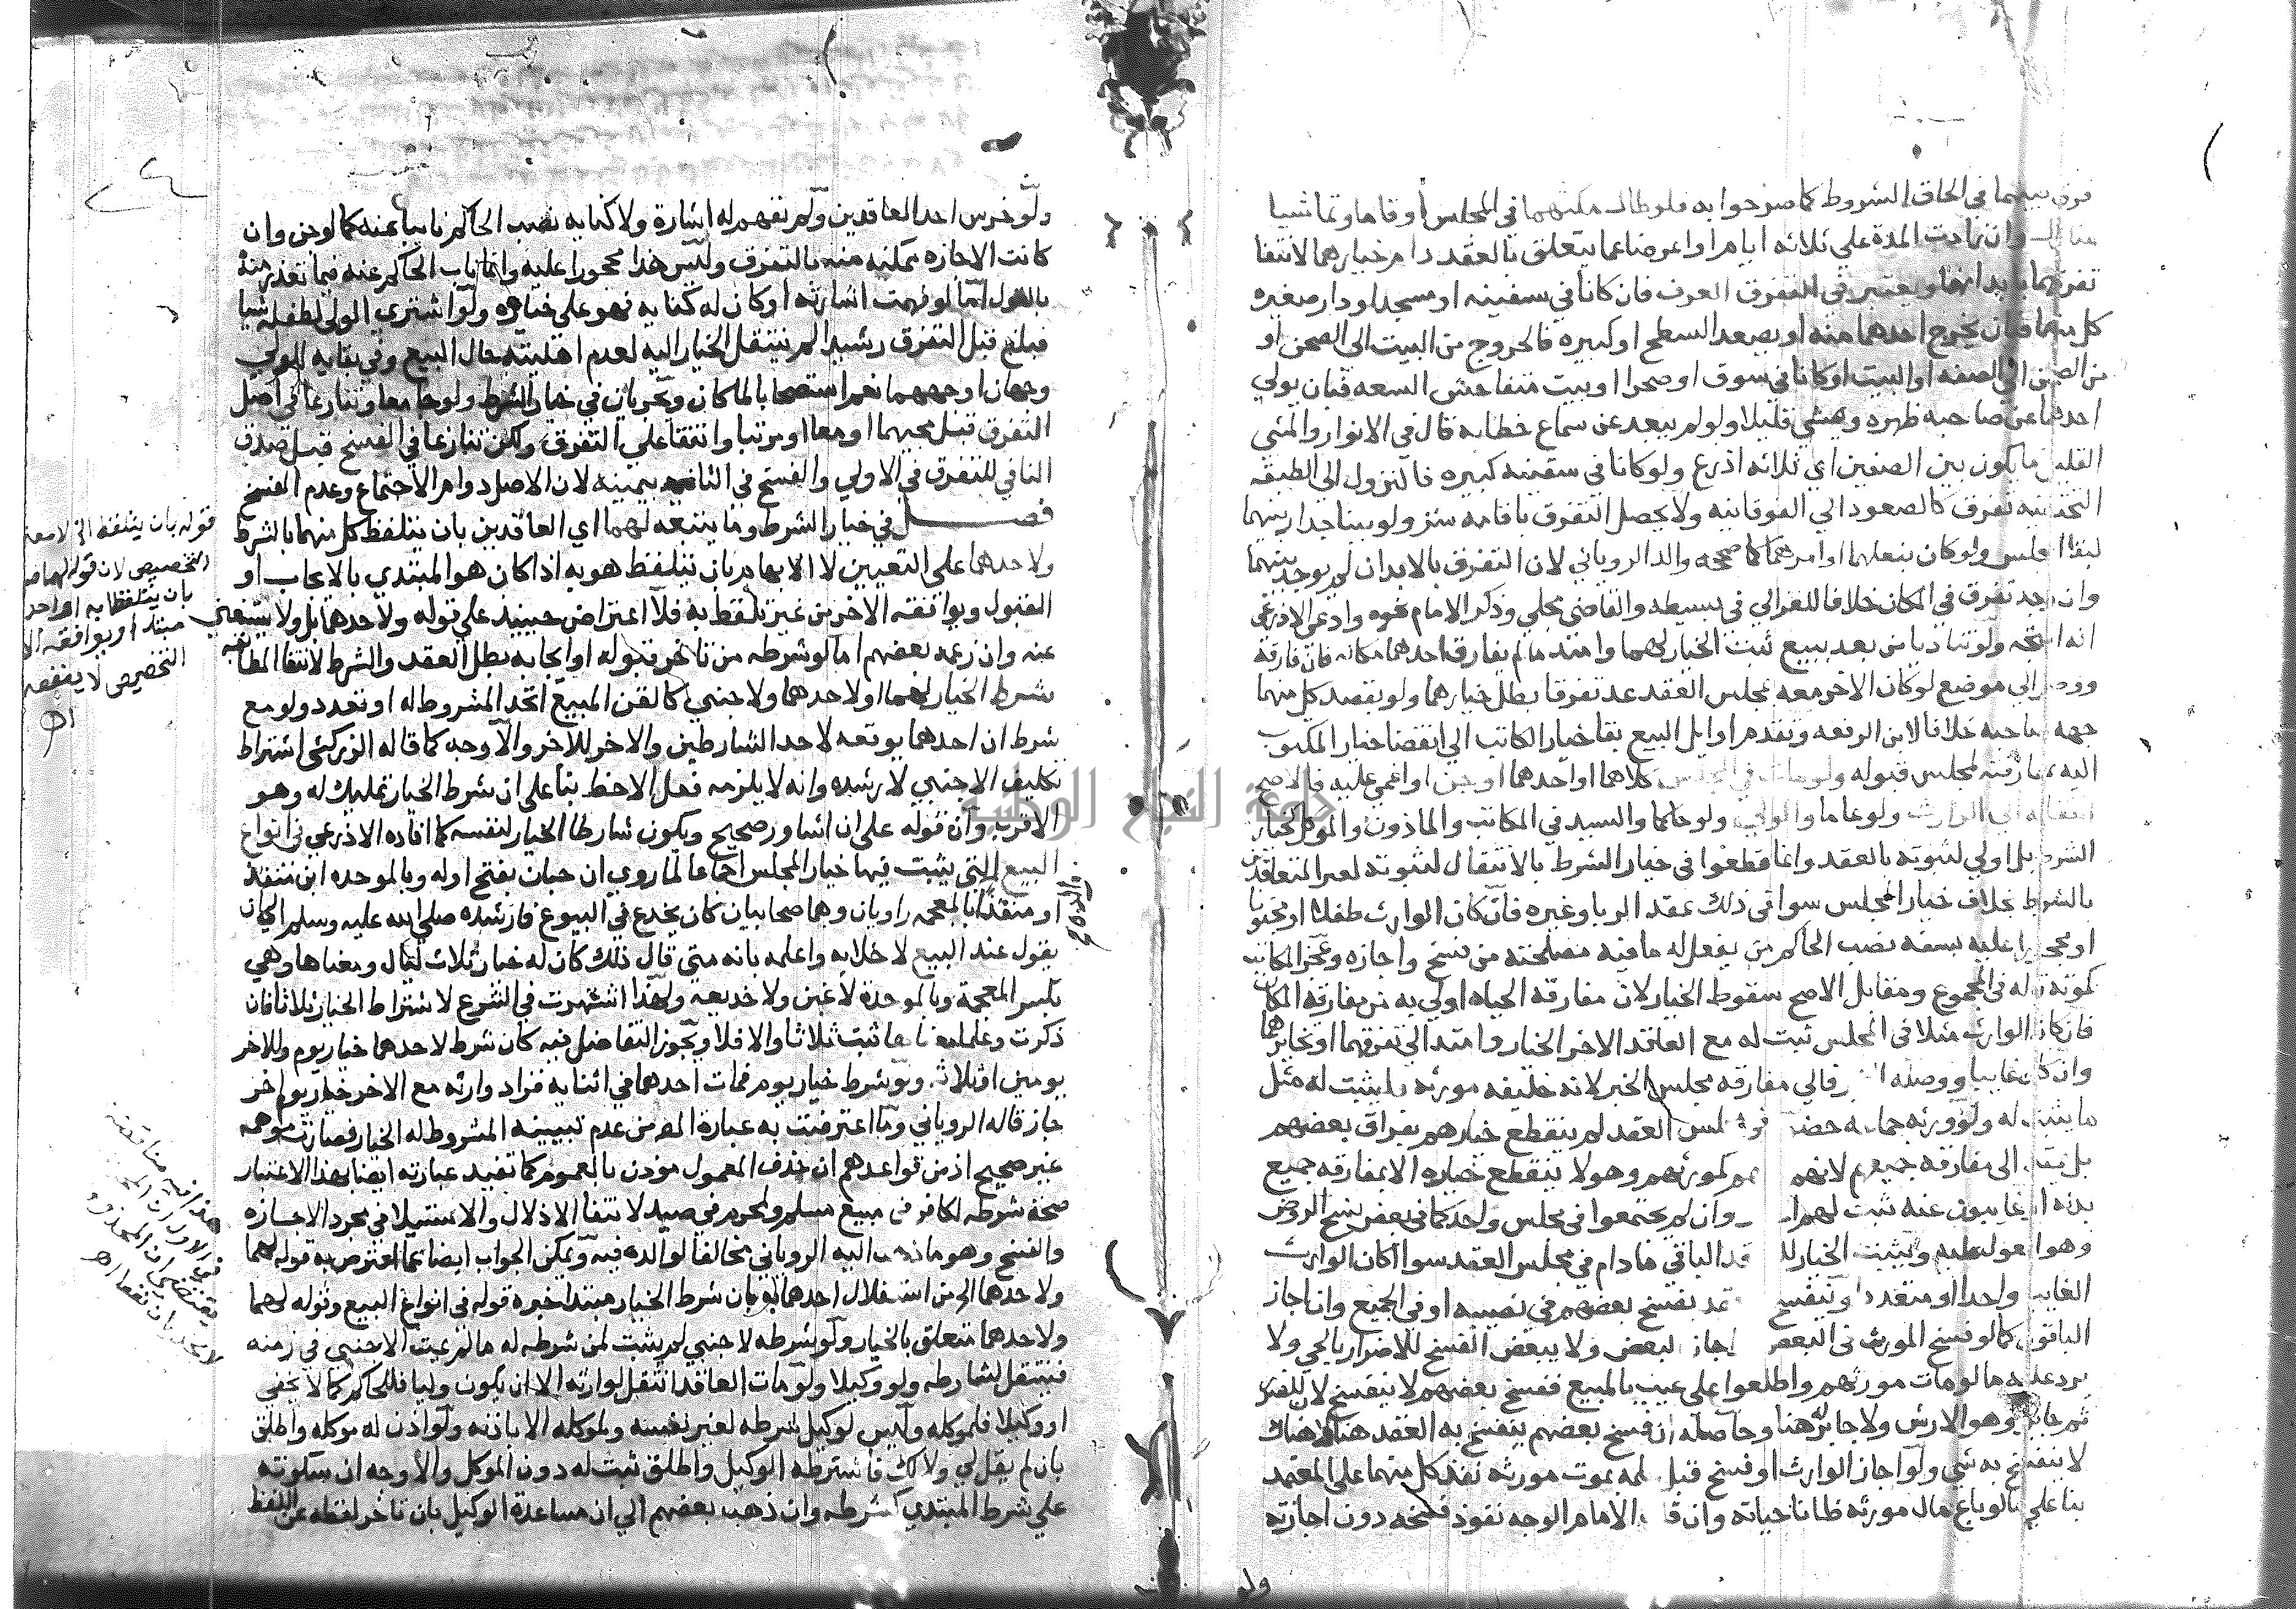 فرق بينهما في الحاق الشروط كما صرحوا به فلو طال مكثهما في المجلس أو قاما وتماشيا
وان زادت المدة علي ثلاثه ايام او اعرضا عما يتعلق بالعقد دام خيارهما لانتفا
تفرقهما ويعتبر في التفرق العرف فان كانا في سفينه او مسجد او دار صغيره
كل منهما فبان يخرج احدهما منه او يصعد السطح او كبيره فالخروج من البيت الي الصحن او
من الصحن الي الصفه او البيت او كانا في سوق او صحرا او بيت متفاحش السعه فبان يولي
احدهما عن صاحبه ظهره ويمشي قليلا ولو لم يبعد عن سماع خطابه قال في الانوار والمشي
القليل ما يكون بين الصفين اي ثلاثه اذرع ولو كانا في سفينه كبيره فالنزول الي الطبقه
التحتانيه تفرق كالصعود الي الفوقانيه ولا يحصل التفرق باقامه ستر ولو ببنا جدار بينهما
لبقا المجلس ولو كان بفعلهما او امرهما كما صححه والد الروياني لان التفرق بالابدان لم يوجد منهما
وان وجد تفرق في المكان خلافا للغزالي في بسيطه والقاضي مجلي وذكر الامام نحوه وادعي الاذرعي
انه المتجه ولو تناديا من بعد ببيع ثبت الخيار لهما وامتد ما لم يفارق احدهما مكانه فان فارقه
ووصل الي موضع لو كان الاخر معه بمجلس العقد عد تفرقا بطل خيارهما ولو بقصد كل منهما
جهه صاحبه خلافا لابن الرفعه وتقدم اوايل البيع بقا خيار الكاتب الي انقضا خيار المكتوب
اليه بمفارقته لمجلس قبوله ولو مات في المجلس كلاهما او احدهما او جن او اغمي عليه فالاصح
انتقاله الي الوارث ولو عاما والولي ولو حاكما والسيد في المكاتب والماذون والموكل كخيار
الشرط بل اولي لثبوته بالعقد وانما قطعوا في خيار الشرط بالانتقال لثبوته لغير المتعاقدين
بالشرط بخلاف خيار المجلس سوا في ذلك عقد الربا وغيره فان كان الوارث طفلا او مجنونا
او محجورا عليه بسفه نصب الحاكم من يفعل له ما فيه مصلحته من فسخ واجازه وعجز المكاتب
كموته قاله في المجموع ومقابل الاصح سقوط الخيار لان مفارقه الحياه اولي به من مفارقه المكان
فان كان الوارث مثلا في المجلس ثبت له مع العاقد الاخر الخيار وامتد الي تفرقهما او تخايرهما
وان كان غايبا ووصله الخبر فالي مفارقه مجلس الخبر لانه خليفه مورثه فيثبت له مثل
ما يثبت له ولو ورثه جماعه حضور في مجلس العقد لم ينقطع خيارهم بفراق بعضهم
بل يمتد الي مفارقه جميعهم لانهم كلهم كمورثهم وهو لا ينقطع خياره الا بمفارقه جميع
بدنه او غايبون عنه ثبت لهم وان لم يجتمعوا في مجلس واحد كما في بعض نسخ الروض
وهو المعول عليه ويثبت الخيار للعاقد الباقي ما دام في مجلس العقد سوا اكان الوارث
الغايب واحدا او متعددا وينفسخ العقد بفسخ بعضهم في نصيبه او في الجميع وان اجاز
الباقون كما لو فسخ المورث في البعض واجاز في البعض ولا يبعض الفسخ للاضرار بالحي ولا
يرد عليه ما لو مات مورثهم واطلعوا علي عيب بالمبيع ففسخ بعضهم لا ينفسخ لان للضرر
ثم جابرا وهو الارش ولا جابر له هنا وحاصله ان فسخ بعضهم ينفسخ به العقد هنا وهناك
لا ينفسخ به شي ولو اجاز الوارث او فسخ قبل علمه بموت مورثه نفذ كل منهما علي المعتمد
بنا علي ما لو باع مال مورثه ظانا حياته وان قال الامام الوجه نفوذ فسخه دون اجازته
ولو
ولو خرس احد العاقدين ولم تفهم له اشارة ولا كتابه نصب الحاكم نايبا عنه كما لو جن وان
كانت الاجازه ممكنه منه بالتفرق وليس هذا محجورا عليه وانما ناب الحاكم عنه فيما تعذر منه
بالقول اما لو فهمت اشارته او كان له كتابه فهو علي خياره ولو اشتري الولي لطفله شيا
فبلغ قبل التفرق رشيدا لم ينتقل الخيار اليه لعدم اهليته حال البيع وفي بقايه للولي
وجهان اوجههما نعم استصحابا لما كان ويجريان في خيار الشرط ولو جا معا وتنازعا في اصل
التفرق قبل مجيهما او معا او مرتبا واتفقا علي التفرق ولكن تنازعا في الفسخ قبل صدق
النافي للتفرق في الاولي والفسخ في الثانيه بيمينه لان الاصل دوام الاجتماع وعدم الفسخ
فصل في خيار الشرط وما يتبعه لهما اي العاقدين بان يتلفظ كل منهما بالشرط
ولاحدهما علي التعيين لا الابهام بان يتلفظ هو به اذا كان هو المبتدي بالايجاب او
القبول ويوافقه الاخر من غير تلفظ به فلا اعتراض حينيذ علي قوله ولاحدهما بل ولا يستغني
عنه وان زعمه بعضهم اما لو شرطه من تاخر قبوله او ايجابه بطل العقد والشرط لانتفا المطابقه
شرط الخيار لهما او لاحدهما ولاجنبي كالقن المبيع اتحد المشروط له او تعدد ولو مع
شرط ان احدهما يوقعه لاحد الشارطين والاخر للاخر والاوجه كما قاله الزركشي اشتراط
تكليف الاجنبي لا رشده وانه لا يلزمه فعل الاحظ بنا علي ان شرط الخيار تمليك له وهو
الاقرب وان قوله علي ان اشاور صحيح ويكون شارطا الخيار لنفسه كما افاده الاذرعي في انواع
البيع التي يثبت فيها خيار المجلس اجماعا لما روي ان حبان بفتح اوله وبالموحده ابن منقذ
او منقذا بالمعجمه راويان وهما صحابيان كان يخدع في البيوع فارشده صلي الله عليه وسلم الي ان
يقول عند البيع لا خلابه واعلمه بانه متي قال ذلك كان له خيار ثلاث ليال ومعناها وهي
بكسر المعجمة وبالموحدة لا غبن ولا خديعه ولهذا اشتهرت في الشرع لاشتراط الخيار ثلاثا فان
ذكرت وعلما معناها ثبت ثلاثا والا فلا ويجوز التفاضل فيه كان شرط لاحدهما خيار يوم وللاخر
يومين او ثلاثه ولو شرط خيار يوم فمات احدهما في اثنايه فزاد وارثه مع الاخر خيار يوم اخر
جاز قاله الروياني وما اعترضت به عبارة المص من عدم تبيينه المشروط له الخيار فصارت موهمه
غير صحيح اذ من قواعدهم ان حذف المعمول موذن بالعموم كما تفيد عبارته ايضا بهذا الاعتبار
صحة شرطه لكافر في مبيع مسلم ولمحرم في صيد لانتفا الاذلال والاستيلا في مجرد الاجازه
والفسخ وهو ما ذهب اليه الروياني مخالفا لوالده فيه ويمكن الجواب ايضا عما اعترض به قوله لهما
ولاحدهما الي من استقلال احدهما به بان شرط الخيار مبتدا خبره قوله في انواع البيع وقوله لهما
ولاحدهما متعلق بالخيار ولو شرطه لاجنبي لم يثبت لمن شرطه له ما لم يمت الاجنبي في زمنه
فينتقل لشارطه ولو وكيلا ولو مات العاقد انتقل لوارثه الا ان يكون وليا فللحاكم كما لا يخفي
او وكيلا فلموكله وليس لوكيل شرطه لغير نفسه ولموكله الا باذنه ولو اذن له موكله واطلق
بان لم يقل لي ولا لك فاشترطه الوكيل واطلق ثبت له دون الموكل والاوجه ان سكوته
علي شرط المبتدي كشرطه وان ذهب بعضهم الي ان مساعدة الوكيل بان تاخر لفظه عن اللفظ
قوله بان يتلفظ الخ لا معنى
التخصيص لان قوله لهما
بان يتلفظا به او احدهما
مبتدا ويوافقه الاخر
التخصيص لا يفقه
اه
والده صح